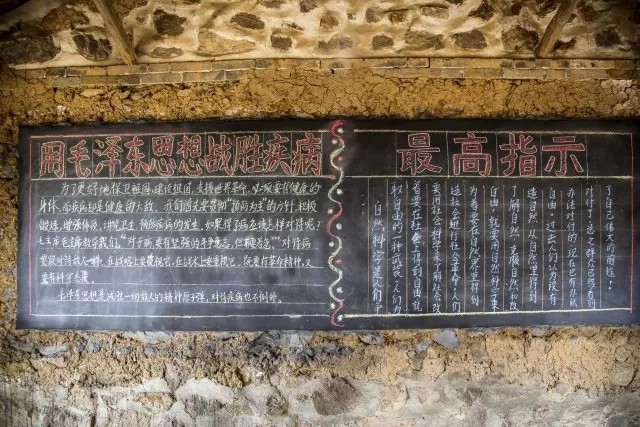 用毛泽东思想战胜疾病
为了更好地保卫祖国,建设祖国,支援世界革命,必须要有健康的
身体,而疾病却是健康的大敌。我们首先要贯彻"预防为主"的方针,积极
锻炼,增强体质,讲究卫生,预防疾病的发生。如果得了病应该怎样对待呢?
毛主席教导我们:"对于病,要有坚强的斗争意志,但不要着急。"对待病
要像对待敌人一样,在战略上要藐视它,在战术上要重视它,既要有革命精神,又
要有科学态度。
毛泽东思想是战胜一切敌人的精神原子弹,对待疾病也不例外。
最高指示
自然科学是人们争
取自由的一种武装,人们为
着要在社会上得到自由,就
要用社会科学来了解社会改
造社会进行社会革命。人们
为着要在自然界里得到
自由,就要用自然科学来
了解自然,克服自然和改
造自然,从自然里得到
自由。过去人们认为没有
办法对付的,现在已有办法
对付了。之群众已经看到
了自己伟大的前途!